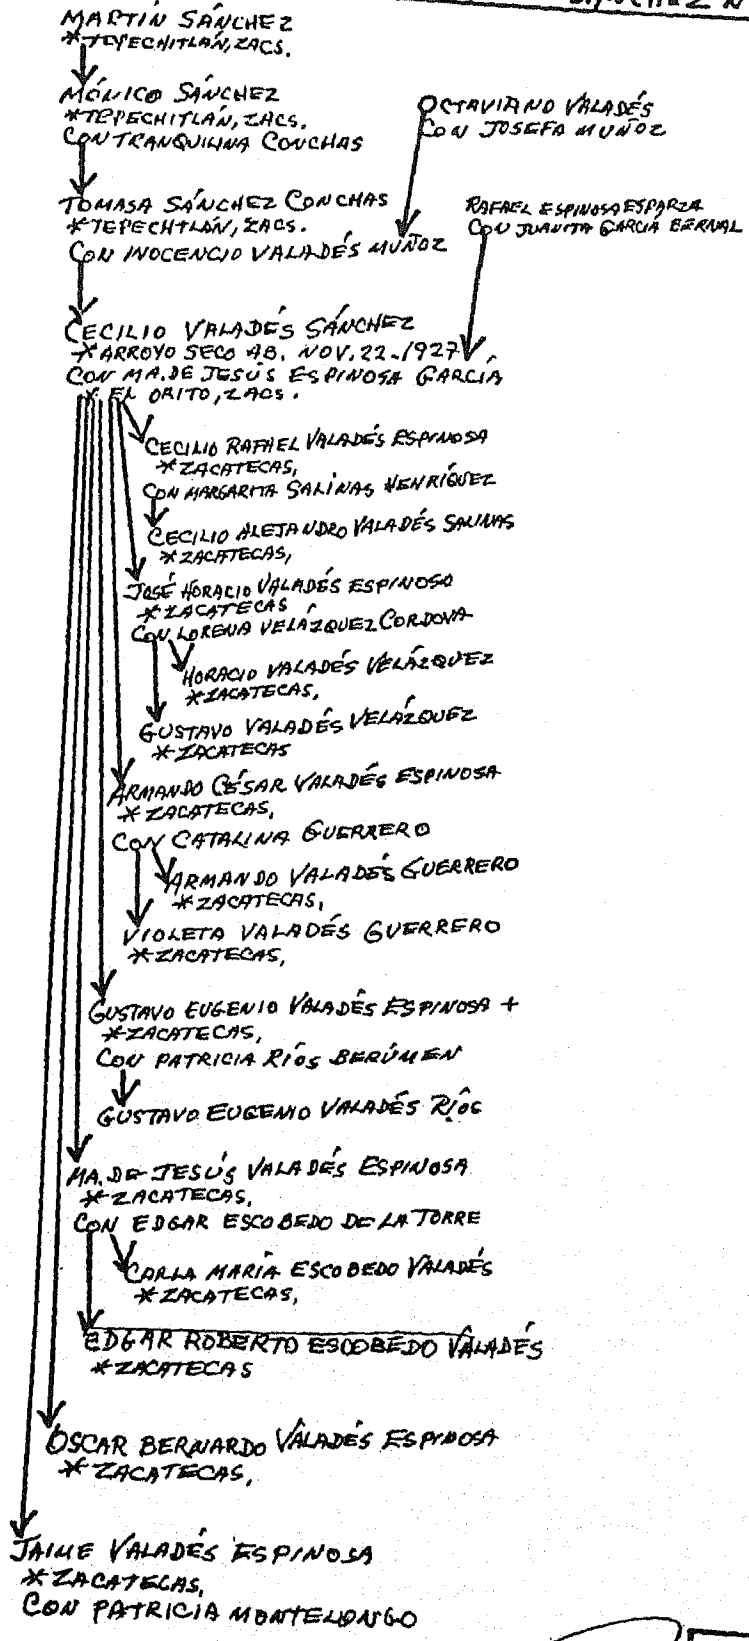 MARTÍN SÁNCHEZ
*TEPECHITLÁN, ZACS.
MÓNICO SÁNCHEZ
*TEPECHITLÁN, ZACS.
CON TRANQUILINA CONCHAS
OCTAVIANO VALADÉS
CON JOSEFA MUÑOZ
TOMASA SÁNCHEZ CONCHAS
*TEPECHTLÁN, ZACS.
CON INOCENCIO VALADÉS MUÑOZ
RAFAEL ESPINOSA ESPARZA
CON JUANITA GARCÍA BERNAL
CECILIO VALADÉS SÁNCHEZ
*ARROYO SECO AB. NOV. 22-1927
CON MA. DE JESÚS ESPINOSA GARCÍA
* EL ORITO, ZACS.
CECILIO RAFAEL VALADÉS ESPINOSA
*ZACATECAS,
CON MARGARITA SALINAS HENRÍQUEZ
CECILIO ALEJANDRO VALADÉS SALINAS
*ZACATECAS,
JOSÉ HORACIO VALADÉS ESPINOSO
*ZACATECAS
CON LORENA VELÁZQUEZ CORDOVA
HORACIO VALADÉS VELÁZQUEZ
*ZACATECAS,
GUSTAVO VALADÉS VELÁZQUEZ
*ZACATECAS
ARMANDO CÉSAR VALADÉS ESPINOSA
*ZACATECAS,
CON CATALINA GUERRERO
ARMANDO VALADÉS GUERRERO
*ZACATECAS,
VIOLETA VALADÉS GUERRERO
*ZACATECAS,
GUSTAVO EUGENIO VALADÉS ESPINOSA +
*ZACATECAS,
CON PATRICIA RÍOS BERÚMEN
GUSTAVO EUGENIO VALADÉS RÍOS
MA. DE JESÚS VALADÉS ESPINOSA
*ZACATECAS,
CON EDGAR ESCOBEDO DE LA TORRE
CARLA MARÍA ESCOBEDO VALADÉS
*ZACATECAS,
EDGAR ROBERTO ESCOBEDO VALADÉS
*ZACATECAS
OSCAR BERNARDO VALADÉS ESPINOSA
*ZACATECAS,
JAIME VALADÉS ESPINOSA
*ZACATECAS,
CON PATRICIA MONTELONGO